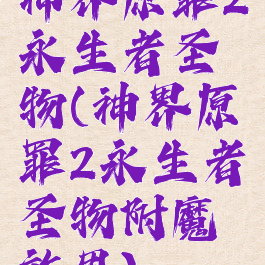 神界原罪2
永生者圣
物(神界原
罪2永生者
圣物附魔
效果)